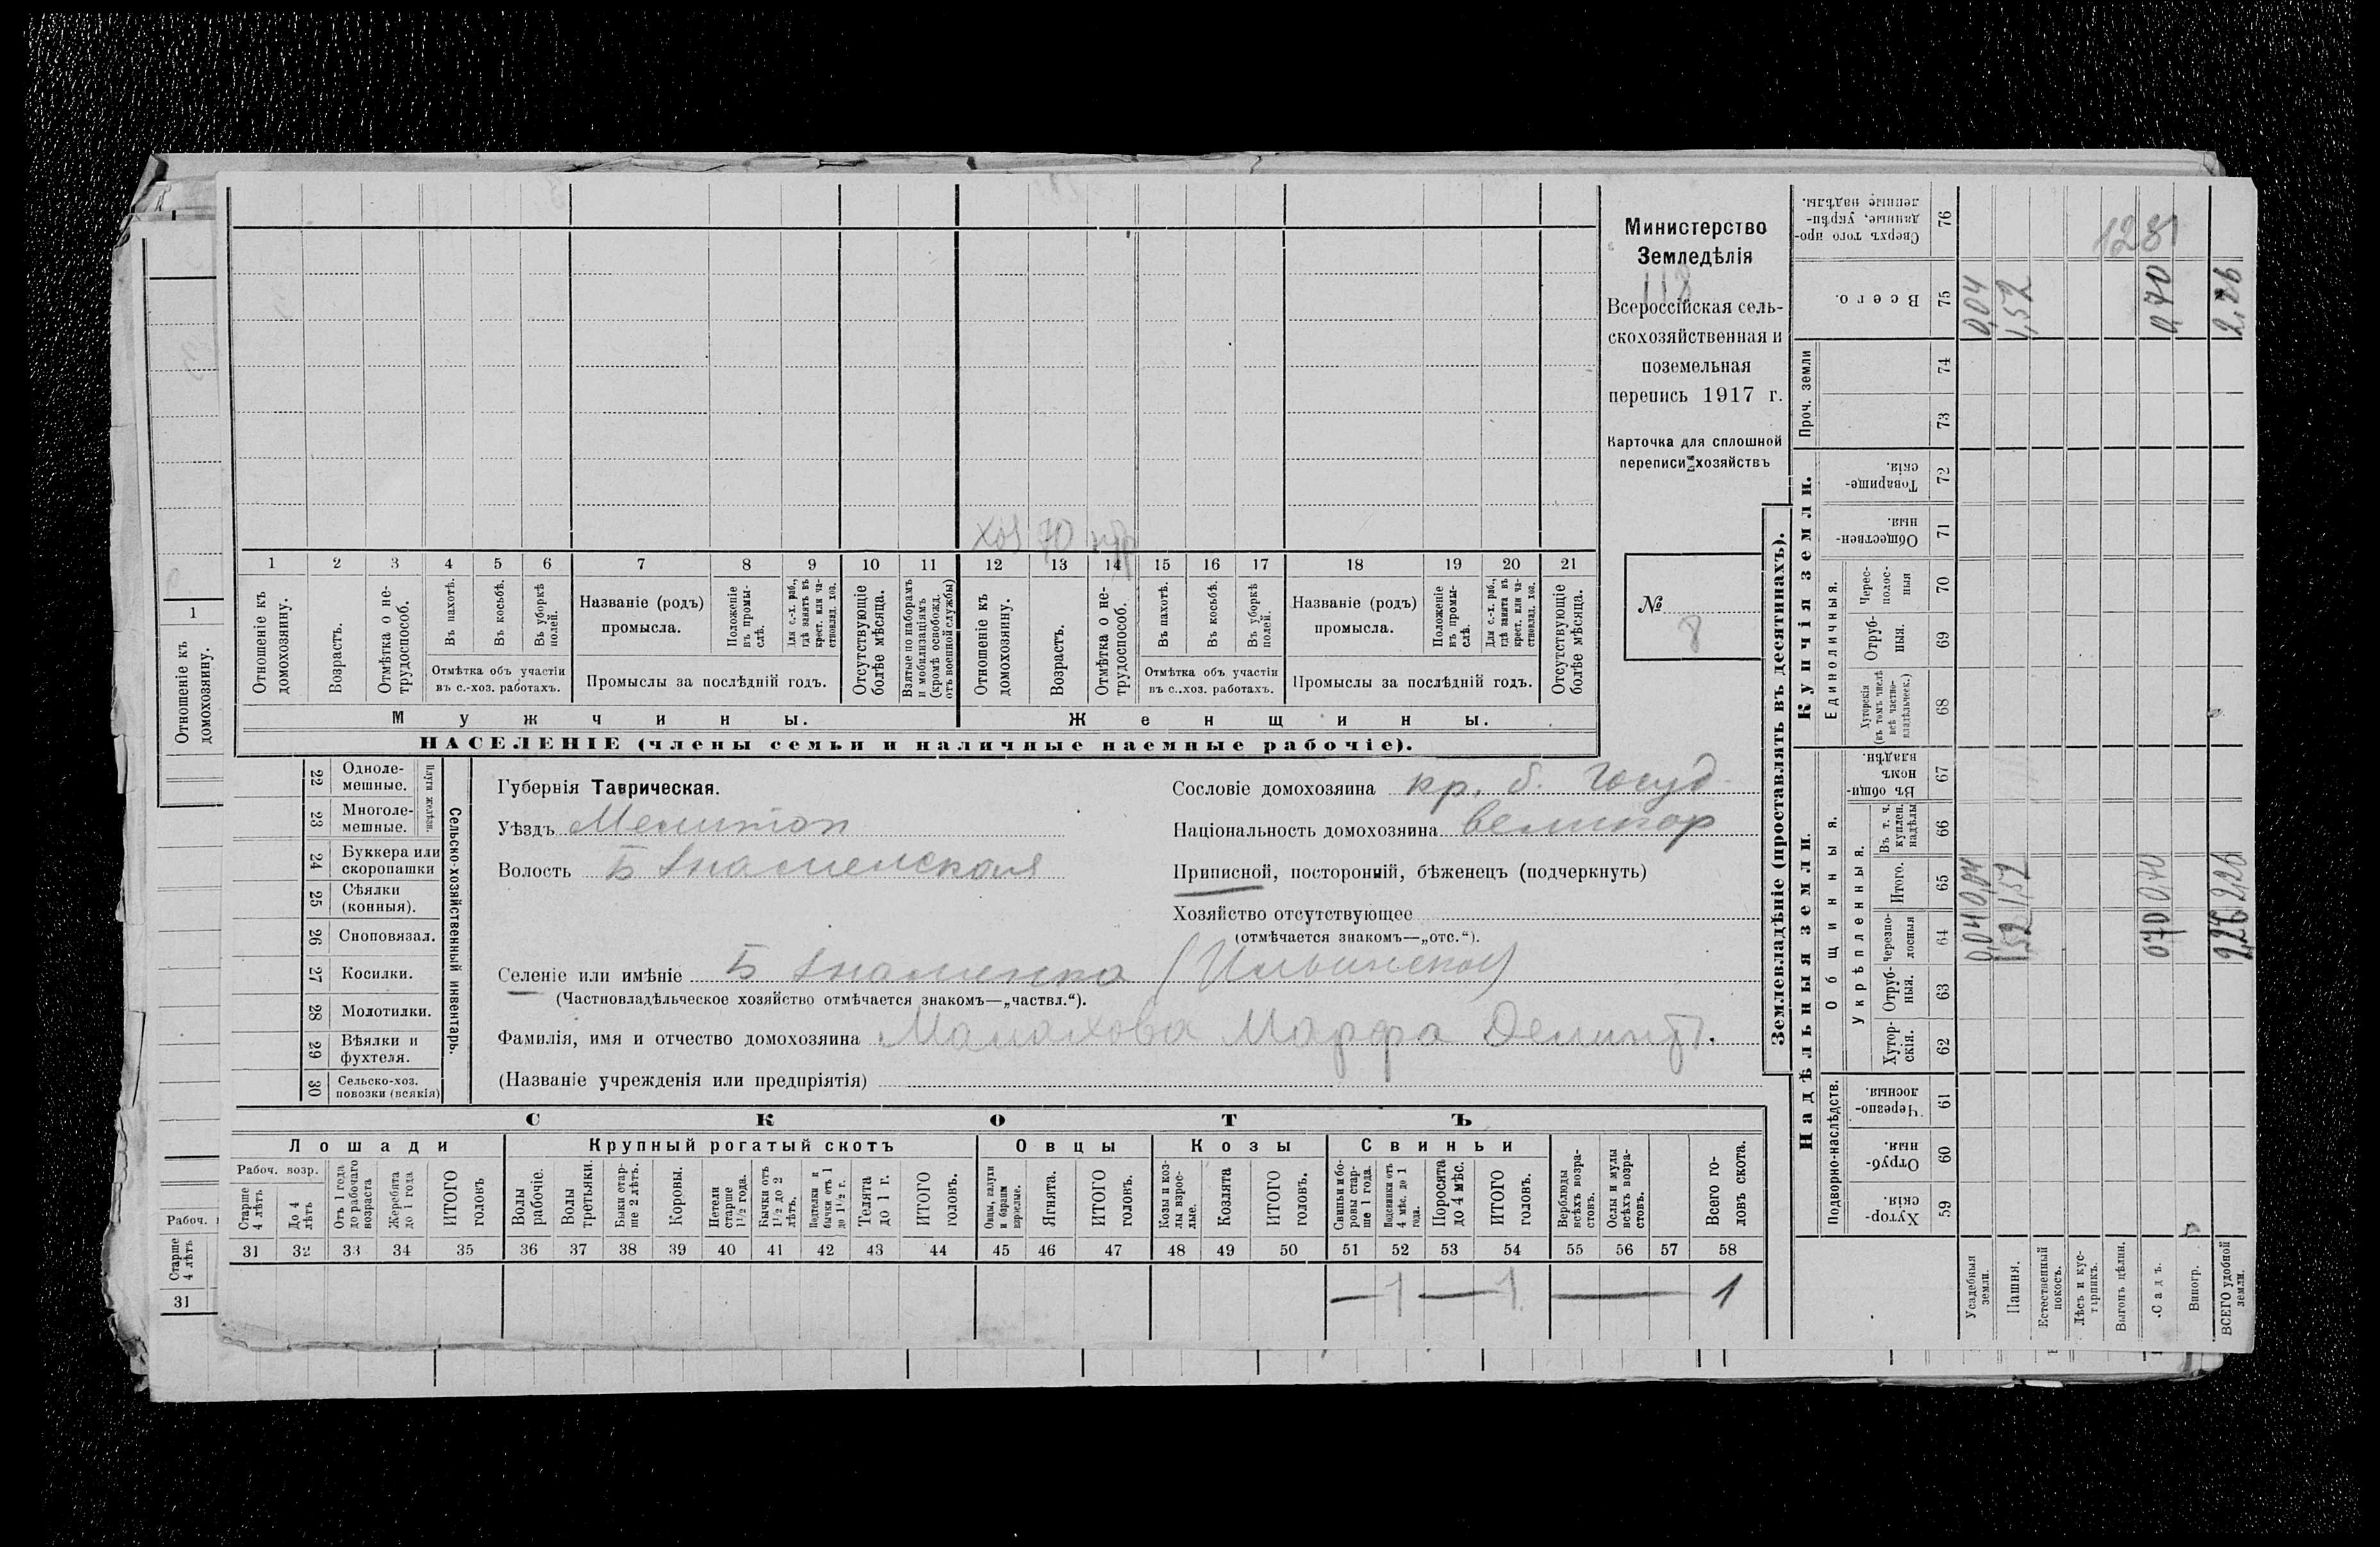 Министерство
Земледѣлія
118
Всероссійская сель-
скохозяйственная и
поземельная
перепись 1917 г.
Карточка для сплошной
переписи хозяйствъ
№
8
хоз 70 н/р
1 2 3 4 5 6 7 8 9 10 11 12 13 14 15 16 17 18 19 20 21
Отношеніе къ домохозяину.
Возрастъ.
Отмѣтка о не-трудоспособ.
Въ пахотѣ.
Въ косьбѣ.
Въ уборкѣ полей.
Отмѣтка объ участіи
въ с.-хоз. работахъ.
Названіе (родъ)
промысла.
Положеніе въ промы-слѣ.
Для с.-х. раб., гдѣ занятъ въ крест. или ча-ствовлад. хоз.
Промыслы за послѣдній годъ.
Отсутствующіе болѣе мѣсяца.
Взятые по наборамъ и мобилизаціямъ (кромѣ освобожд. отъ военной службы)
Отношеніе къ домохозяину.
Возрастъ.
Отмѣтка о не-трудоспособ.
Въ пахотѣ.
Въ косьбѣ.
Въ уборкѣ полей.
Отмѣтка объ участіи
въ с.-хоз. работахъ.
Названіе (родъ)
промысла.
Положеніе въ промы-слѣ.
Для с.-х. раб., гдѣ занята въ крест. или ча-ствовлад. хоз.
Промыслы за послѣдній годъ.
Отсутствующіе болѣе мѣсяца.
Мужчины.
Женщины.
НАСЕЛЕНІЕ (члены семьи и наличные наемные рабочіе).
Сельско-хозяйственный инвентарь.
Плуги желѣзн.
22 Одноле-мешные.
23 Многоле-мешные.
24 Буккера или скоропашки
25 Сѣялки (конныя).
26 Сноповязал.
27 Косилки.
28 Молотилки.
29 Вѣялки и фухтеля.
30 Сельско-хоз. повозки (всякія)
Губернія Таврическая.
Уѣздъ Мелитоп
Волость Б Знаменская
Сословіе домохозяина кр. б. госуд
Національность домохозяина великор
Приписной, посторонній, бѣженецъ (подчеркнуть)
Хозяйство отсутствующее
(отмѣчается знакомъ—„отс.“).
Селеніе или имѣніе Б Знаменка (Ильинское)
(Частновладѣльческое хозяйство отмѣчается знакомъ—„частвл.“).
Фамилія, имя и отчество домохозяина Малахова Марфа
(Названіе учрежденія или предпріятія)
СКОТЪ
Лошади
Крупный рогатый скотъ
Овцы
Козы
Свиньи
Рабоч. возр.
Старше 4 лѣтъ
До 4 лѣтъ
Отъ 1 года до рабочаго возраста
Жеребята до 1 года
ИТОГО головъ
Волы рабочіе.
Волы третьяки.
Быки стар-ше 2 лѣтъ.
Коровы.
Нетели старше 1½ года.
Бычки отъ 1½ до 2 лѣтъ.
Подтелки и бычки отъ 1 до 1½ г.
Телята до 1 г.
ИТОГО головъ.
Овцы, валухи и бараны взрослые.
Ягнята.
ИТОГО головъ.
Козы и коз-лы взрос-лые.
Козлята
ИТОГО головъ.
Свиньи и бо-ровы стар-ше 1 года.
Подсвинки отъ 4 мѣс. до 1 года.
Поросята до 4 мѣс.
ИТОГО головъ.
Верблюды всѣхъ возра-стовъ.
Ослы и мулы всѣхъ возра-стовъ.
Всего го-ловъ скота.
31 32 33 34 35 36 37 38 39 40 41 42 43 44 45 46 47 48 49 50 51 52 53 54 55 56 57 58
— 1 — 1 — 1
Землевладѣніе (проставлять въ десятинахъ).
Надѣльныя земли.
Купчія земли.
Проч. земли
Подворно-наслѣдств.
Общинныя.
Укрѣпленныя.
Единоличныя.
Хутор-скія. 59
Отруб-ныя. 60
Черезпо-лосныя. 61
Хутор-скія. 62
Отруб-ныя. 63
Черезпо-лосныя 64
Итого. 65
Въ т. ч. куплен. надѣлы 66
Въ общин-номъ владѣн. 67
Хуторскія (въ томъ числѣ всѣ частно-владѣльческ.) 68
Отруб-ныя. 69
Черес-полос-ныя 70
Обществен-ныя. 71
Товарище-скія. 72
73
74
Всего. 75
Сверхъ того про-данные, укрѣп-ленные надѣлы. 76
Усадебныя земли. 0,04 0,04 0,04
Пашня. 1,52 1,52 1,52
Естественный покосъ.
Лѣсъ и кус-тарникъ.
Выгонъ цѣлин.
Садъ. 0,70 0,70 0,70
Виногр.
ВСЕГО удобной земли. 2,26 2,26 2,26
1281
1
Отношеніе къ домохозяину.
Рабоч.
Старше 4 лѣтъ
31